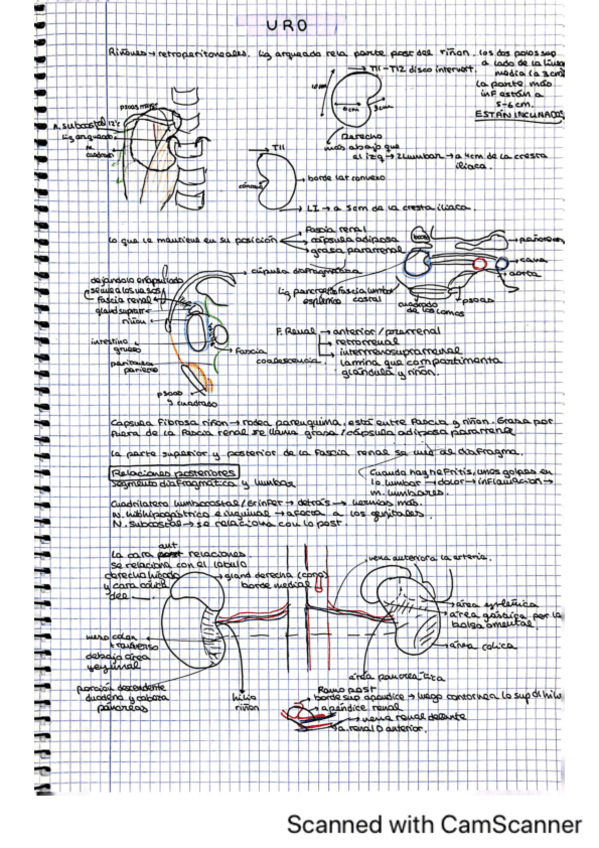 URO
Riñones → retroperitoneales. Lig arqueado rela parte post del riñon. Los dos polos sup
a lado de la línea
media (a 3cm)
la parte más
inf están a
5-6 cm.
ESTÁN INCLINADOS
T11-T12 disco intervert.
3cm
Derecho
más abajo que
el izq → 2 lumbar → a 4cm de la cresta
iliaca.
psoas mayor
A. subcostal 12ª
Lig arqueado
M.
cuadrado
T11
borde lat convexo
L1 → a 5cm de la cresta iliaca.
lo que le mantiene en su posición
Fascia renal
cápsula adiposa
grasa pararrenal
cúpula diafragmática
páncreas
cava
aorta
psoas
cuadrado
de los lomos
fascia lumbo
costal
dejandolo encapsulado
fascia renal
gland suprarr
riñon
intestino
grueso
peritoneo
parietal
psoas
y cuadrado
Fascia
coalescencia
F. Renal → anterior / prerrenal
retrorrenal
interrenosuprarrenal
lamina que compartimenta
glándula y riñon.
Capsula Fibrosa riñon → rodea parenquima, está entre Fascia y riñon. Grasa por
fuera de la Fascia renal se llama grasa / cápsula adiposa pararrenal
la parte superior y posterior de la Fascia renal se une al diafragma.
Relaciones posteriores
Segmento diafragmático y lumbar
Cuando hay nefritis, unos golpes en
lo lumbar → dolor → inflamación →
m. lumbares.
Cuadrilatero lumbocostal / Grinfelt → detrás → hernias más.
N. iliohipogástrico e inguinal → afecta a los genitales.
N. subcostal → se relaciona con lo post.
ant
La cara post relaciones
se relaciona con el lobulo
derecho hígado
y cara cólica
gland derecha (cono)
borde medial
vena anterior a la arteria.
área esplénica
área gástrica por la
bolsa omental.
área cólica
meso colon
transverso
debajo área
yeyunal
porción descendente
duodeno y cabeza
páncreas
hilio
riñon
área pancreática
Ramo post
borde sup apéndice → luego contornea lo sup del hilio
apéndice renal
vena renal delante
a. renal D anterior.
Scanned with CamScanner